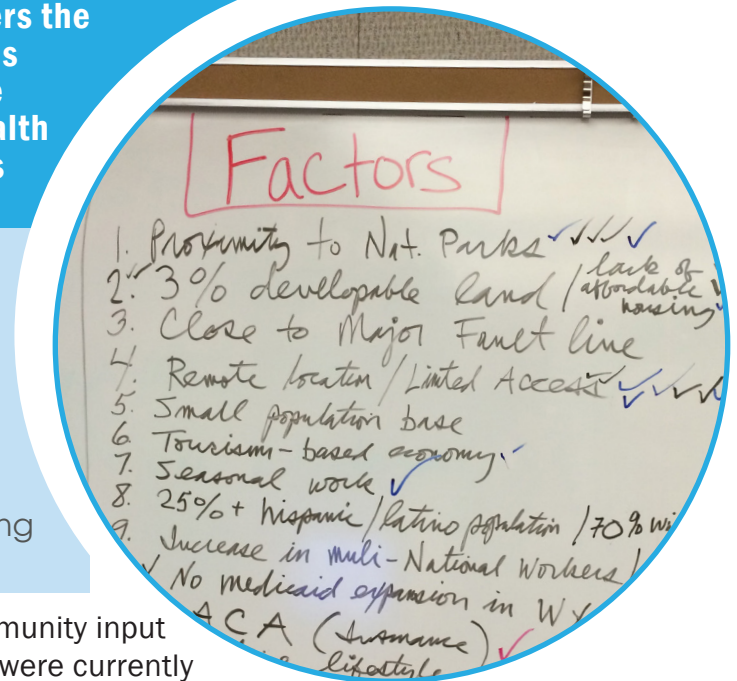 ers the
s
e
alth
s
ng
munity input
were currently
Factors
1. Proximity to Nat. Parks ✓✓✓✓
2. ✓ 3% developable land / lack of affordable housing ✓
3. Close to Major Fault line
4. Remote location / Limited Access ✓✓✓✓✓
5. Small population base
6. Tourism-based economy ✓
7. Seasonal work ✓
8. 25%+ hispanic/latino population / 70%
9. Increase in muli-National Workers /
No medicaid expansion in WY
ACA (Insurance) ✓
lifestyle